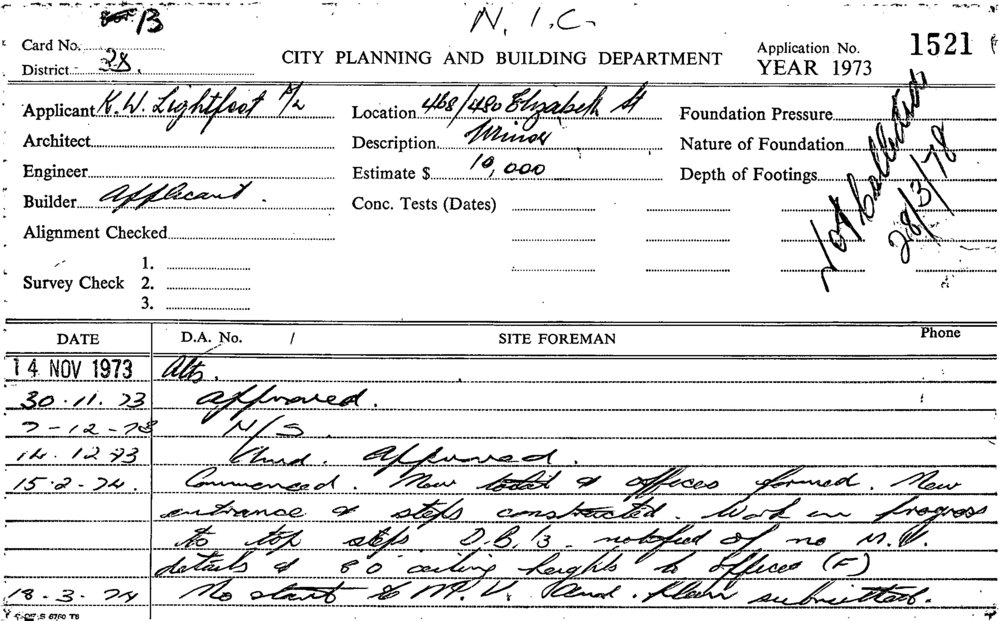 B
N.I.C.
Card No.
District 28.
CITY PLANNING AND BUILDING DEPARTMENT
Application No. 1521
YEAR 1973
Applicant K.W. Lightfoot P/L
Location 468/480 Elizabeth St
Foundation Pressure
Architect
Description Minor
Nature of Foundation
Engineer
Estimate $ 10,000
Depth of Footings
Builder Applicant.
Conc. Tests (Dates)
Not Collected
28/3/78
Alignment Checked
Survey Check
1.
2.
3.
DATE D.A. No. / SITE FOREMAN Phone
14 NOV 1973 Alts.
30.11.73 approved.
7-12-73 N/S.
14.12.73 Amd. Approved.
15.2.74. Commenced. New & offices formed. New
entrance & steps constructed. Work in progress
to top steps. D.B.3. notified of no M.V.
details & 8'0 ceiling heights to offices (F)
18.3.74 No start to M.V. Amd. Plan submitted.